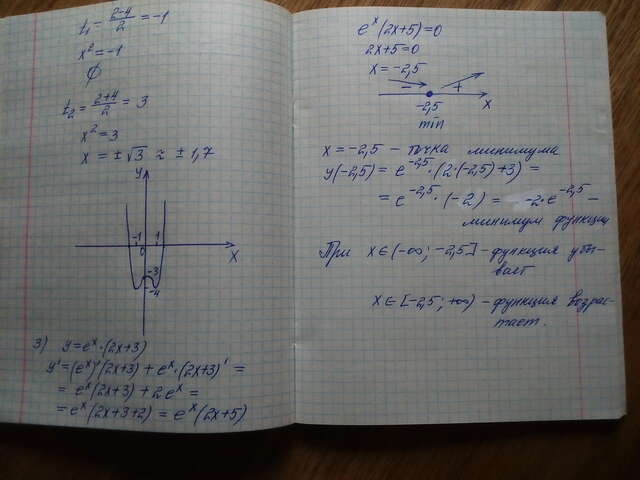 t₁ = (2-4)/2 = -1
x² = -1
∅
t₂ = (2+4)/2 = 3
x² = 3
x = ±√3 ≈ ±1,7
y
-1 0 1 x
-3
-4
3) y = eˣ·(2x+3)
y' = (eˣ)'(2x+3) + eˣ·(2x+3)' =
= eˣ(2x+3) + 2eˣ =
= eˣ(2x+3+2) = eˣ(2x+5)
eˣ(2x+5) = 0
2x+5=0
x = -2,5
- +
-2,5 x
min
x = -2,5 – точка минимума
y(-2,5) = e^-2,5·(2·(-2,5)+3) =
= e^-2,5·(-2) = -2·e^-2,5 –
минимум функции
При x∈(-∞; -2,5] - функция убы-
вает
x∈[-2,5; +∞) - функция возрас-
тает.